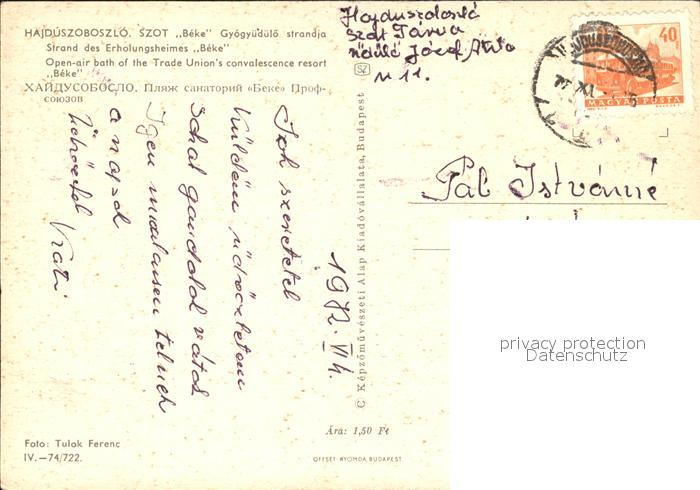 HAJDÚSZOBOSZLÓ. SZOT „Béke" Gyógyüdülő strandja
Strand des Erholungsheimes „Béke"
Open-air bath of the Trade Union's convalescence resort
„Béke"
ХАЙДУСОБОСЛО. Пляж санаторий «Беке» Проф-
союзов
Hajduszoboszló
Szot Tárna
üdülő József Attila
u 11.
40f
MAGYAR POSTA
Pál Istvánné
1972. VI 4.
Sok szeretetel
Küldöm üdvözletem
Sokat gondolok rátok
Igen
a napok
Kati
© Képzőművészeti Alap Kiadóvállalata, Budapest
Ára: 1,50 Ft
Foto: Tulok Ferenc
IV.—74/722.
OFFSET-NYOMDA, BUDAPEST
privacy protection
Datenschutz